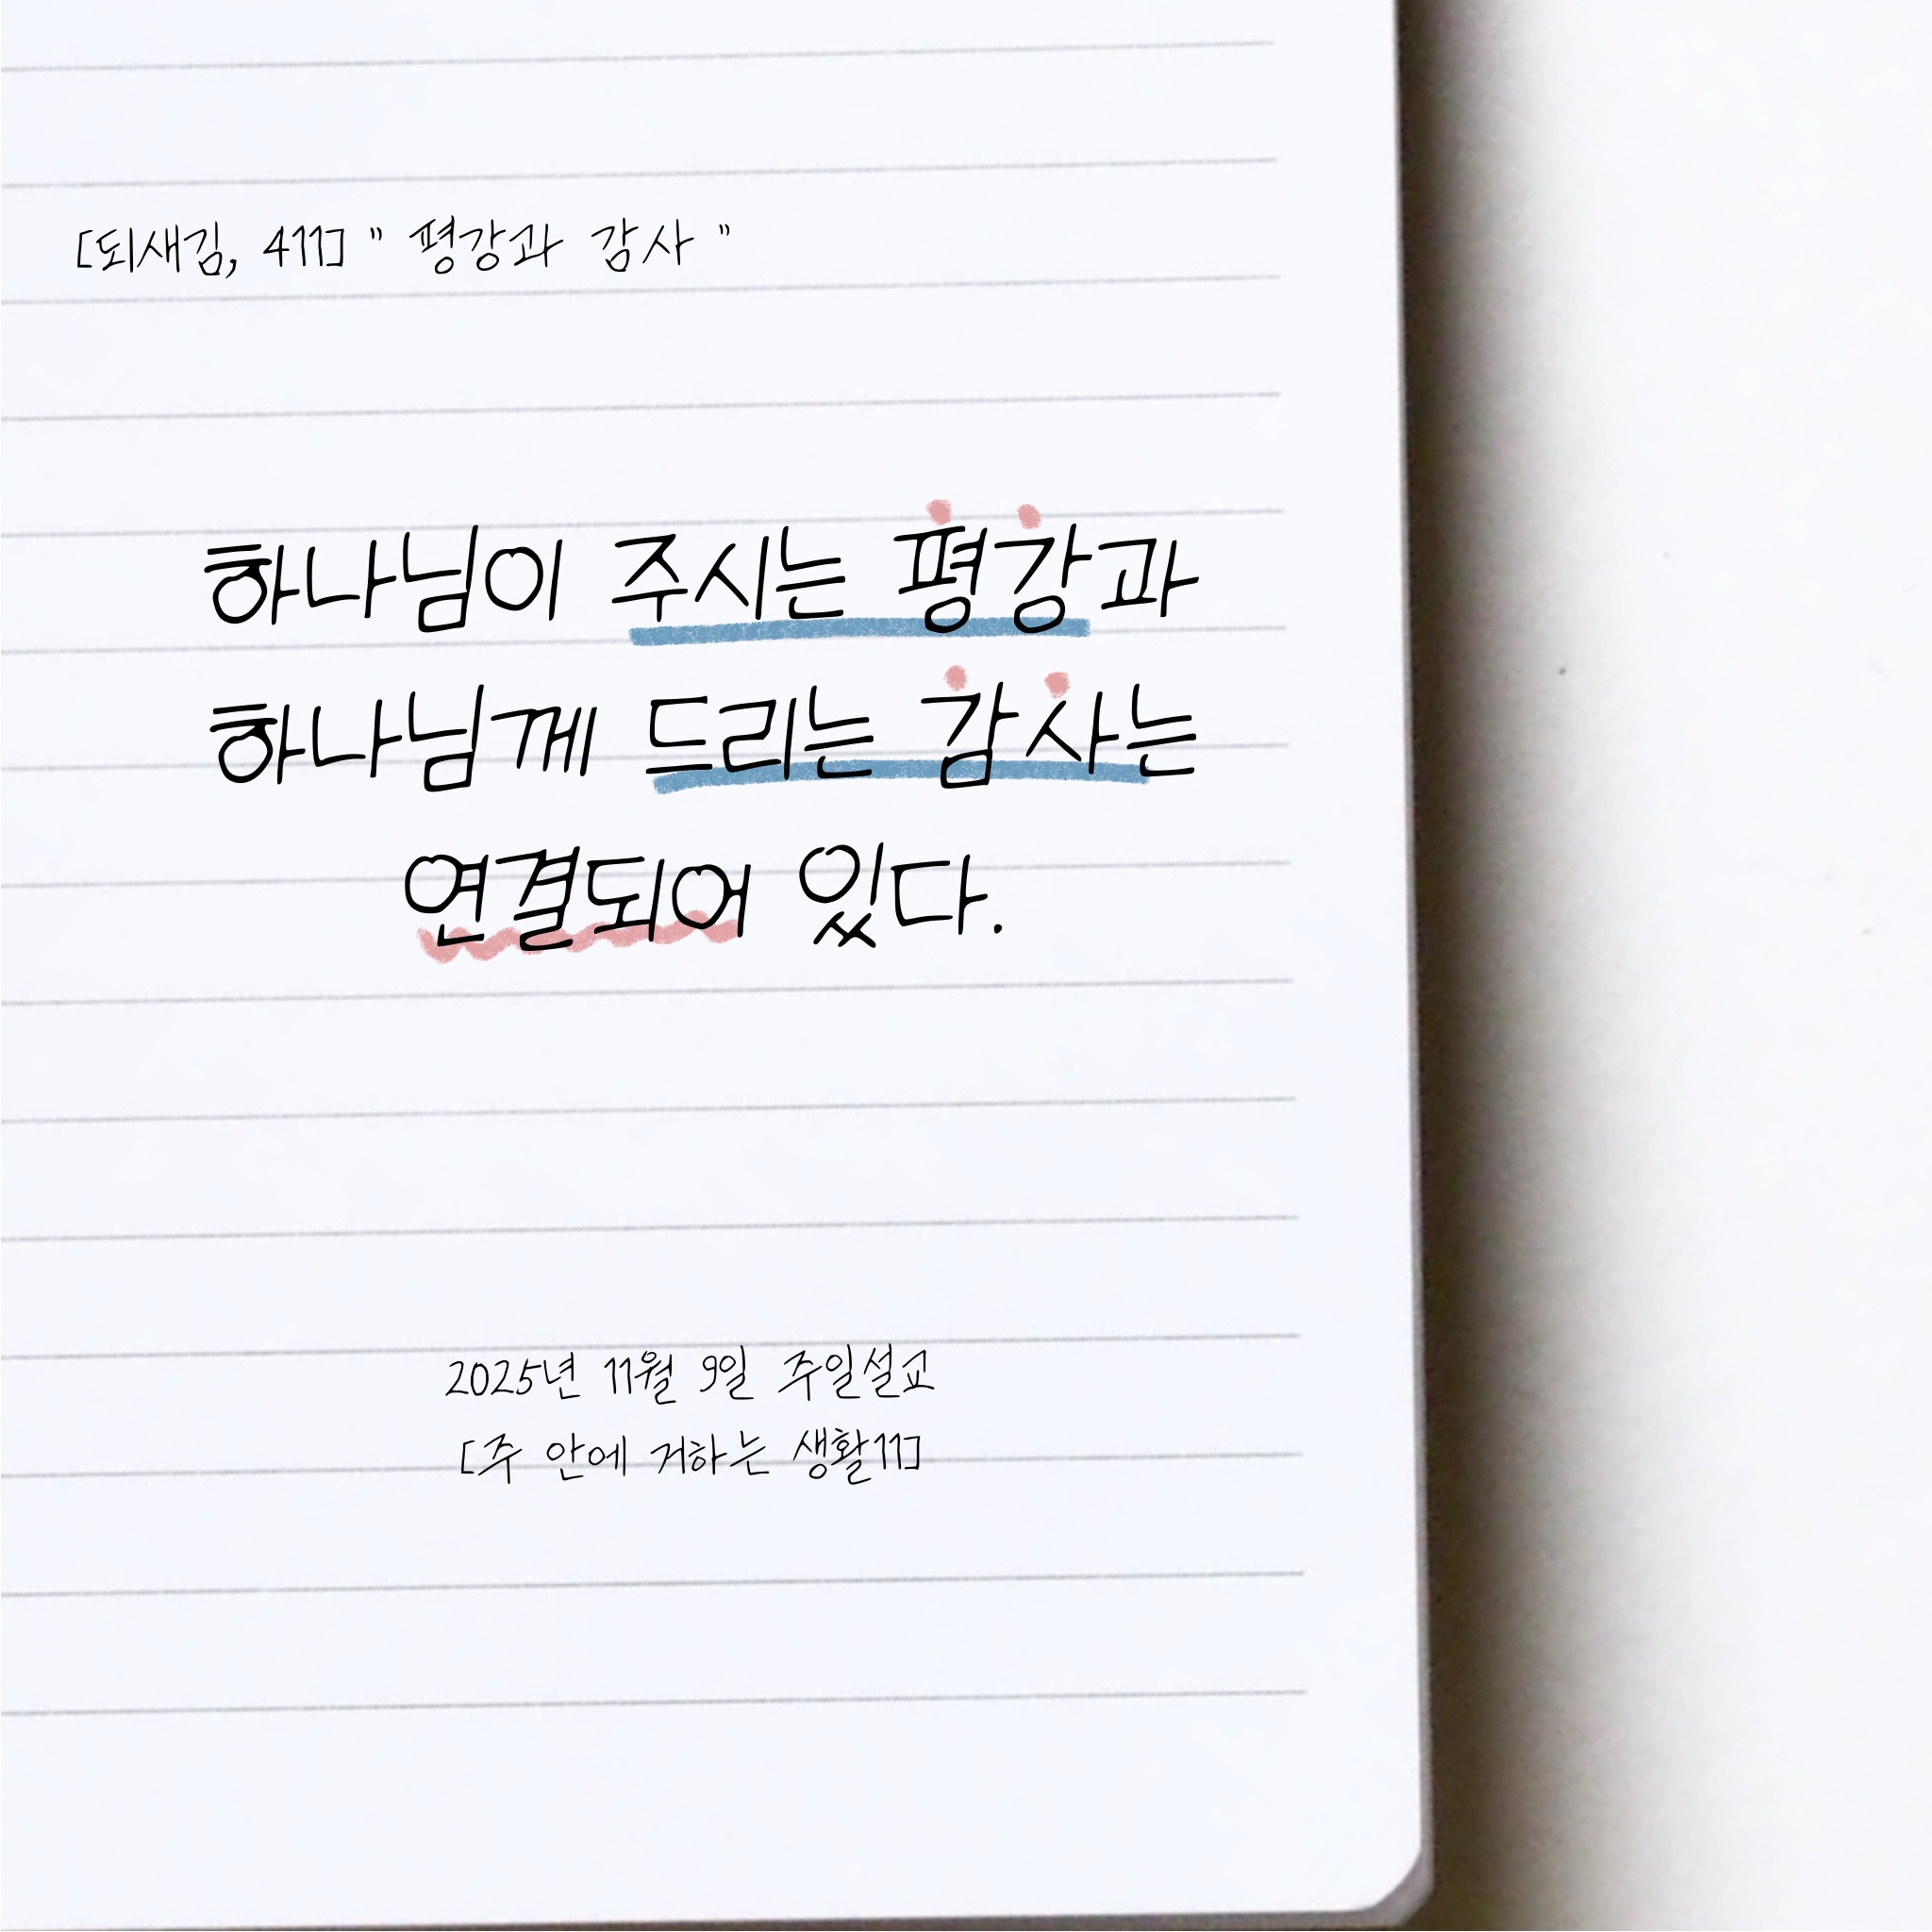 [되새김, 411] " 평강과 감사 "
하나님이 주시는 평강과
하나님께 드리는 감사는
연결되어 있다.
2025년 11월 9일 주일설교
[주 안에 거하는 생활11]